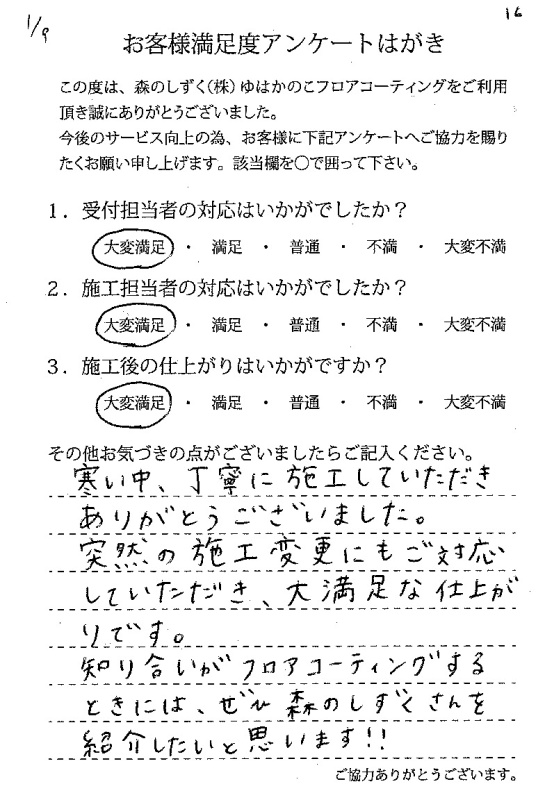 1/9
16
お客様満足度アンケートはがき
この度は、森のしずく(株) ゆはかのこフロアコーティングをご利用
頂き誠にありがとうございました。
今後のサービス向上の為、お客様に下記アンケートへご協力を賜り
たくお願い申し上げます。該当欄を〇で囲って下さい。
1．受付担当者の対応はいかがでしたか？
大変満足 ・ 満足 ・ 普通 ・ 不満 ・ 大変不満
2．施工担当者の対応はいかがでしたか？
大変満足 ・ 満足 ・ 普通 ・ 不満 ・ 大変不満
3．施工後の仕上がりはいかがですか？
大変満足 ・ 満足 ・ 普通 ・ 不満 ・ 大変不満
その他お気づきの点がございましたらご記入ください。
寒い中、丁寧に施工していただき
ありがとうございました。
突然の施工変更にもご対応
していただき、大満足な仕上が
りです。
知り合いがフロアコーティングする
ときには、ぜひ森のしずくさんを
紹介したいと思います!!
ご協力ありがとうございます。